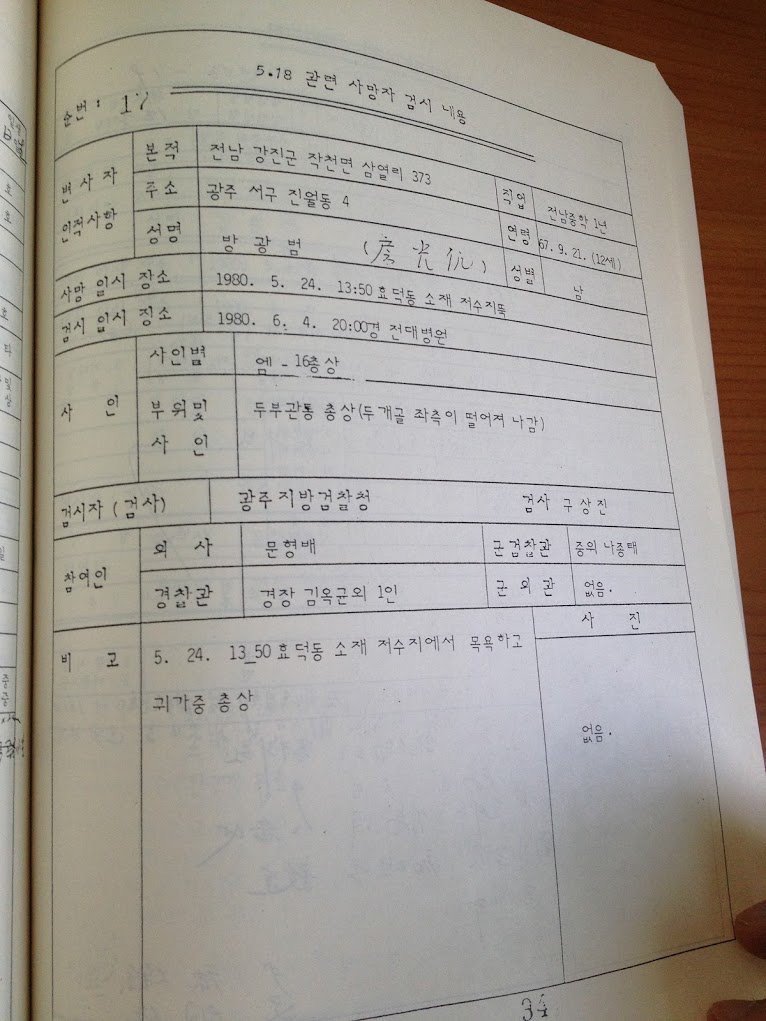 5.18 관련 사망자 검시 내용
순번 : 17
변사자 인적사항
본적 전남 강진군 작천면 삼열리 373
주소 광주 서구 진월동 4
직업 전남중학 1년
연령 67. 9. 21. (12세)
성명 방광범
성별 남
사망 일시 장소 1980. 5. 24. 13:50 효덕동 소재 저수지뚝
검시 일시 장소 1980. 6. 4. 20:00경 전대병원
사인
사인별 엠-16총상
부위및 사인 두부관통 총상(두개골 좌측이 떨어져 나감)
검시자 (검사) 광주지방검찰청 검사 구상진
참여인
의사 문형배 군검찰관 중위 나종태
경찰관 경장 김옥균외 1인 군의관 없음.
비고 5. 24. 13_50 효덕동 소재 저수지에서 목욕하고
귀가중 총상
사진
없음.
34